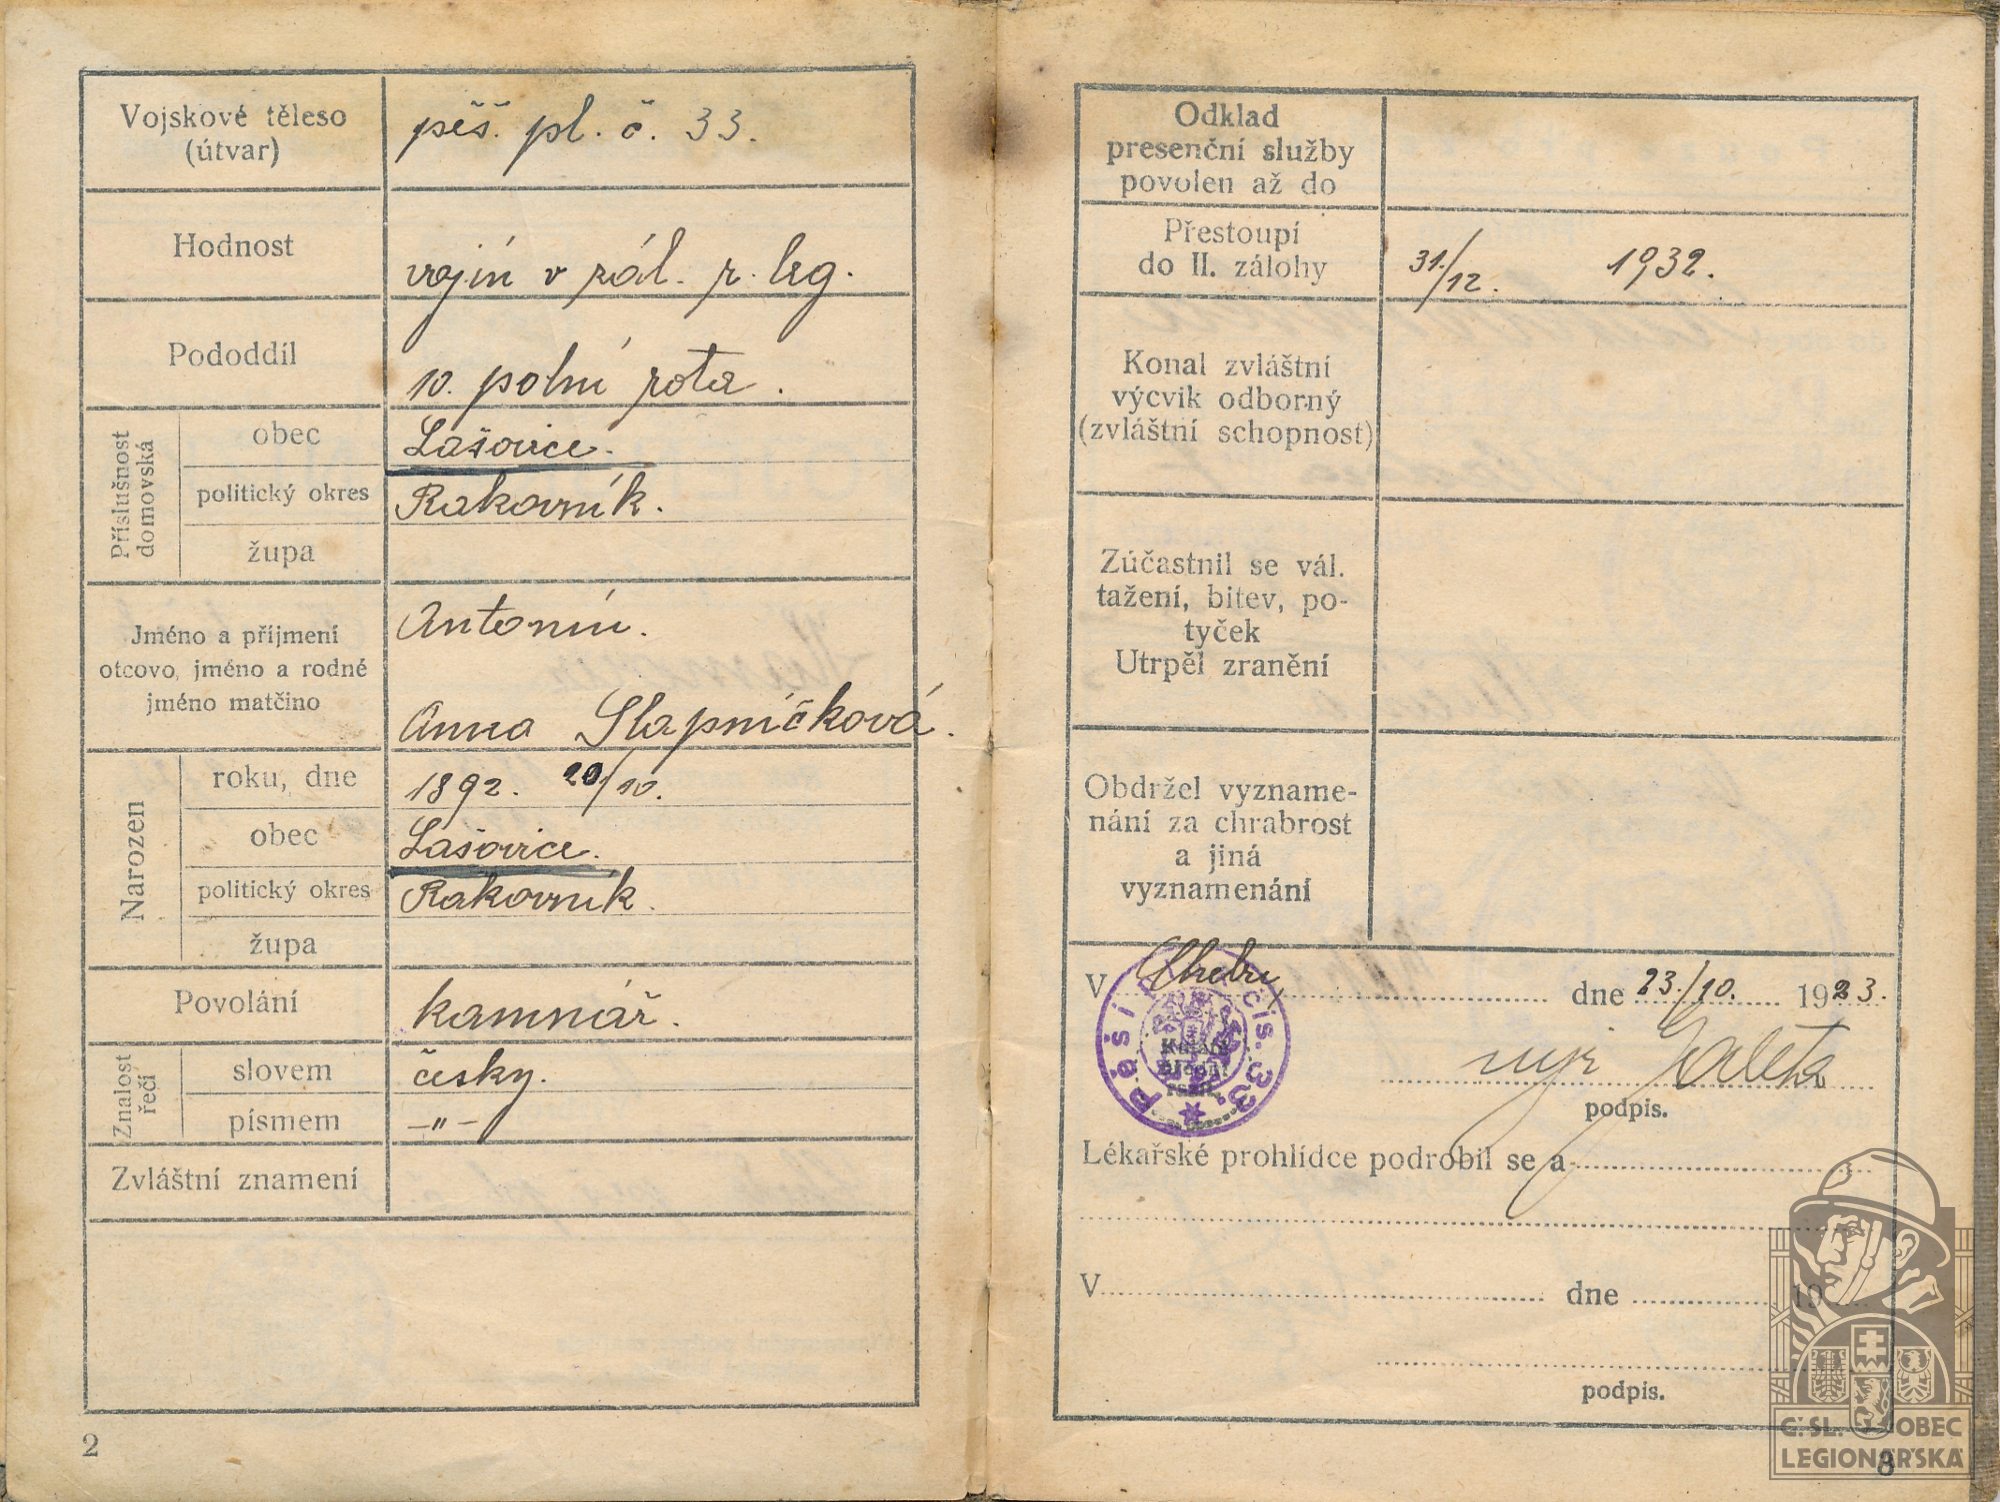 Vojskové těleso
(útvar)
pěš. pl. č. 33.
Hodnost
vojín v zál. r. leg.
Pododdíl
10. polní rota.
Příslušnost
domovská
obec
Lašovice.
politický okres
Rakovník.
župa
Jméno a příjmení
otcovo, jméno a rodné
jméno matčino
Antonín.
Anna Slapničková.
Narozen
roku, dne
1892. 20/10.
obec
Lašovice.
politický okres
Rakovník.
župa
Povolání
kamnář.
Znalost
řečí
slovem
česky.
písmem
–"–
Zvláštní znamení
2
Odklad
presenční služby
povolen až do
Přestoupí
do II. zálohy
31./12. 1932.
Konal zvláštní
výcvik odborný
(zvláštní schopnost)
Zúčastnil se vál.
tažení, bitev, po-
tyček
Utrpěl zranění
Obdržel vyzname-
nání za chrabrost
a jiná
vyznamenání
V Chebu, dne 23./10. 1923.
Pěší čís. 33.
podpis.
Lékařské prohlídce podrobil se a
V dne 19
podpis.
Č. SL. OBEC
LEGIONÁŘSKÁ
3